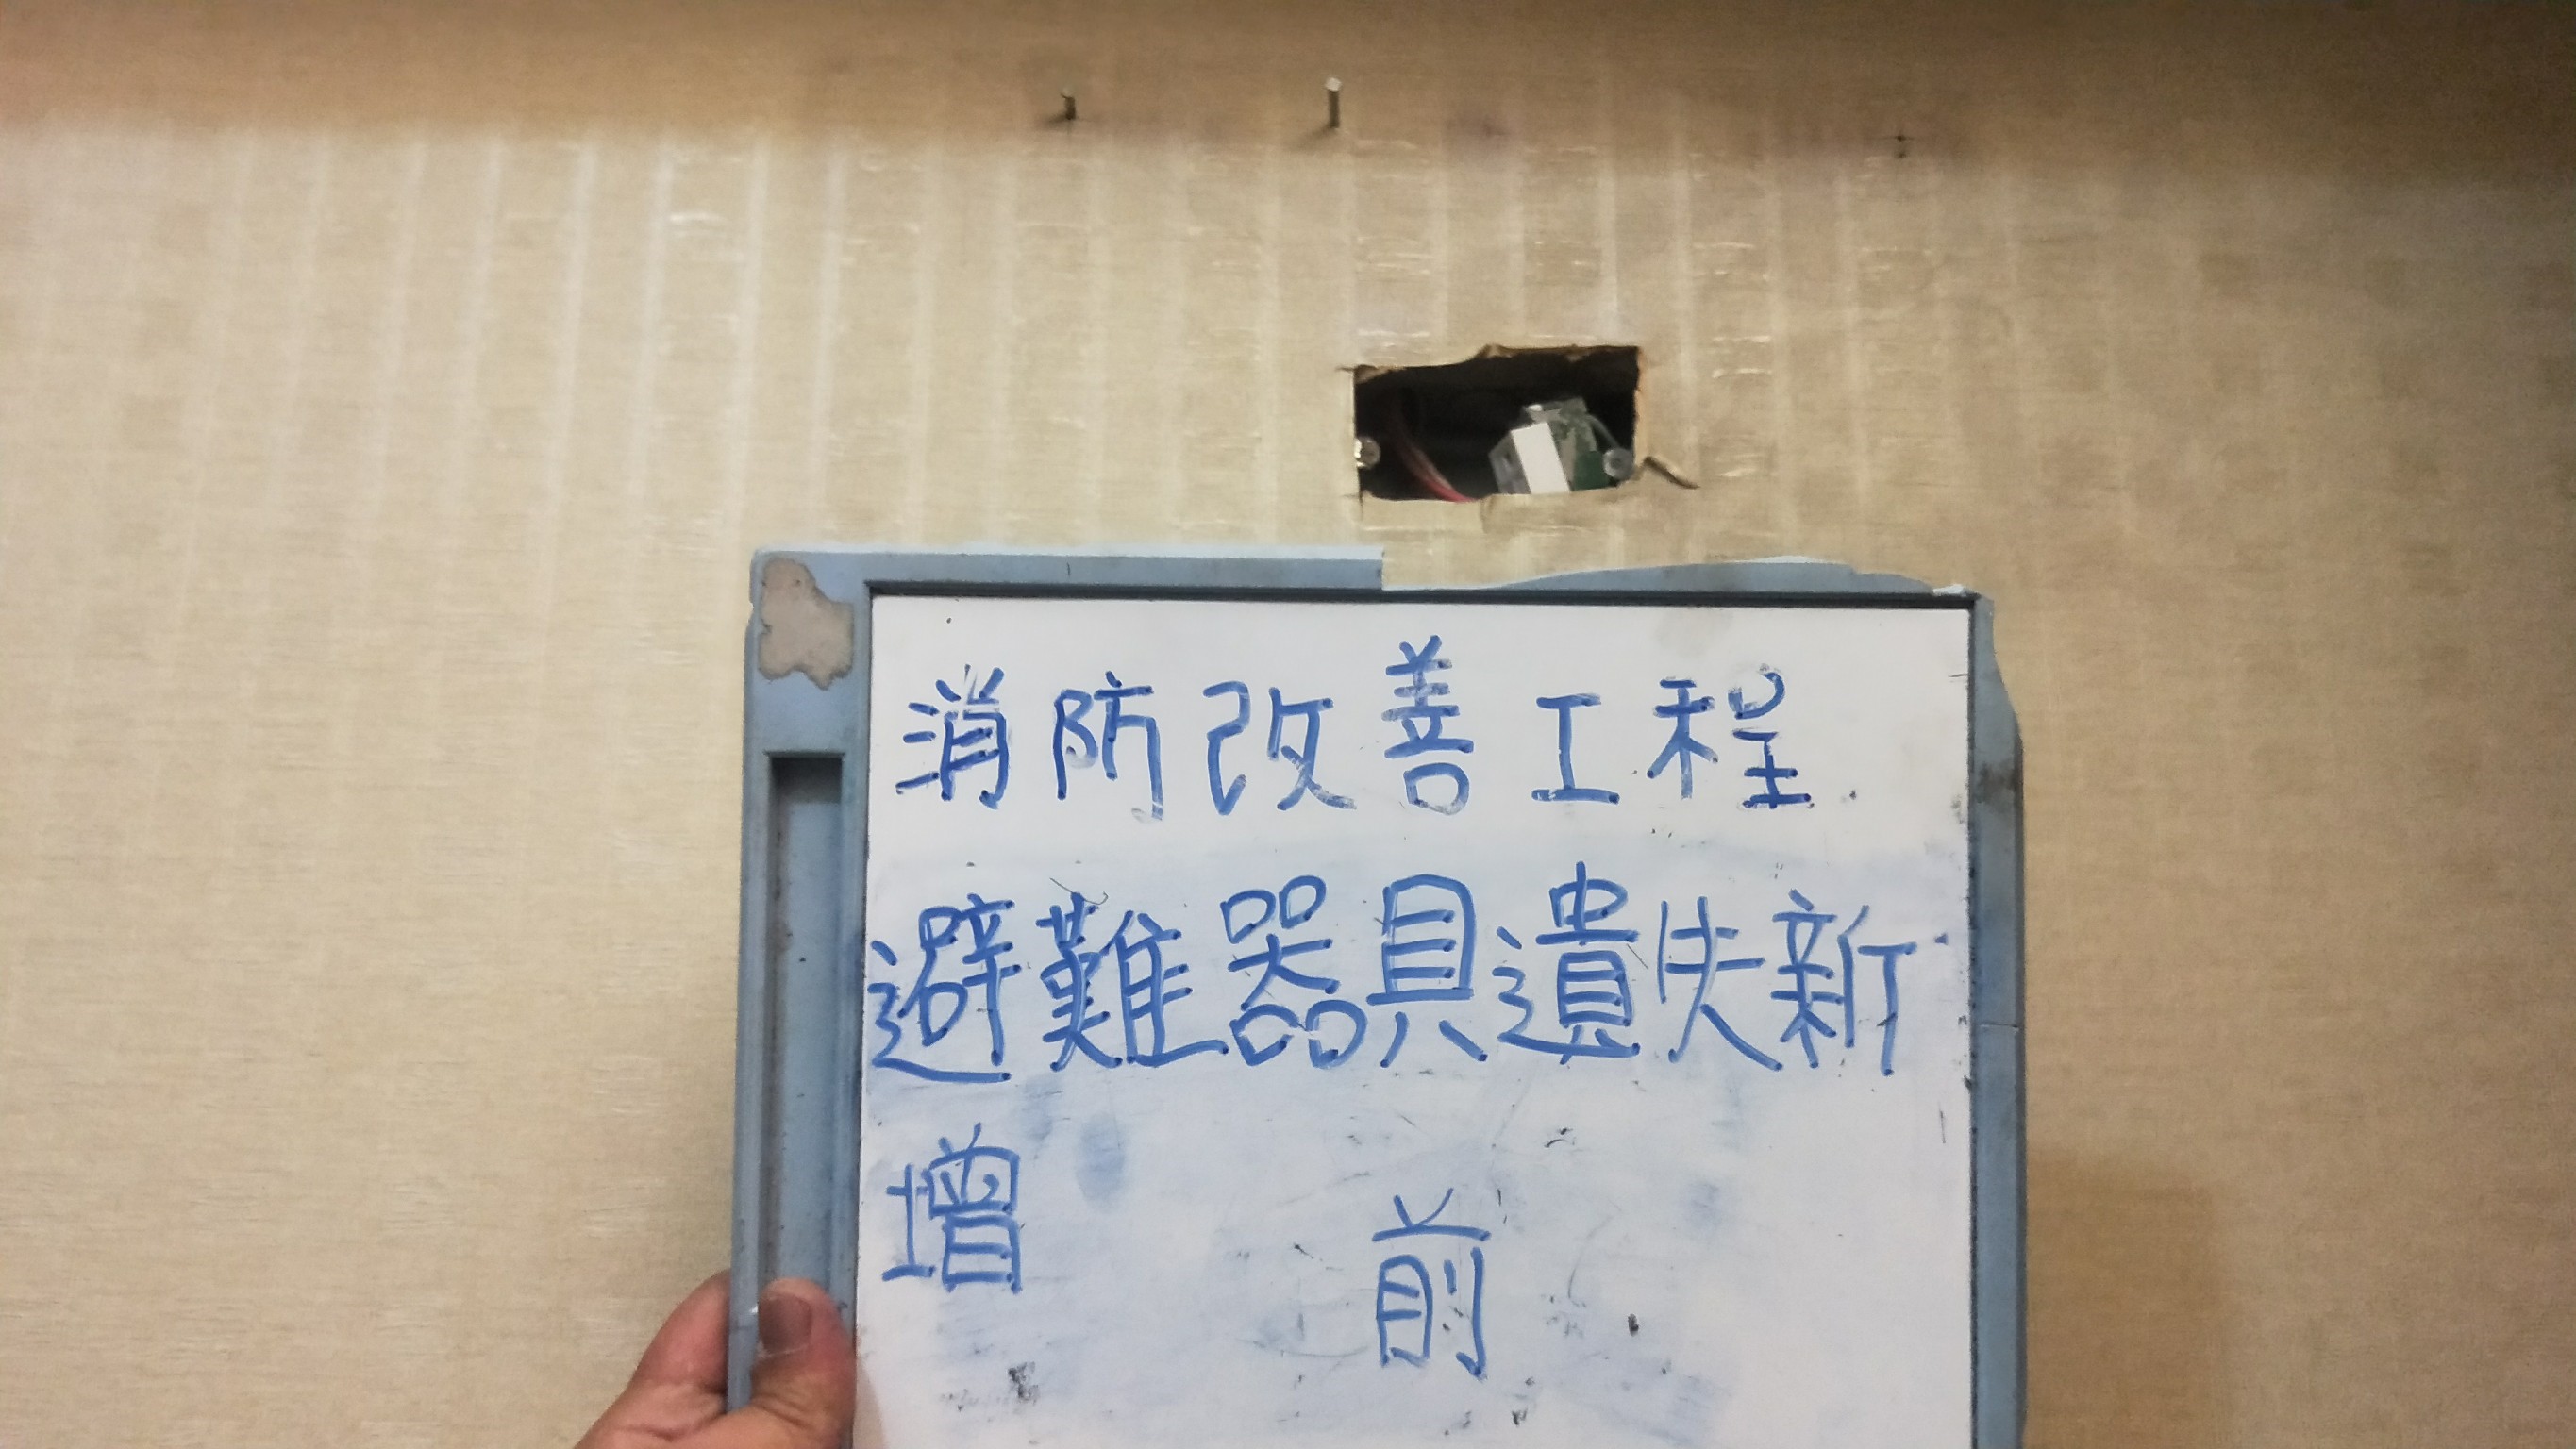 消防改善工程
避難器具遺失新
增
前